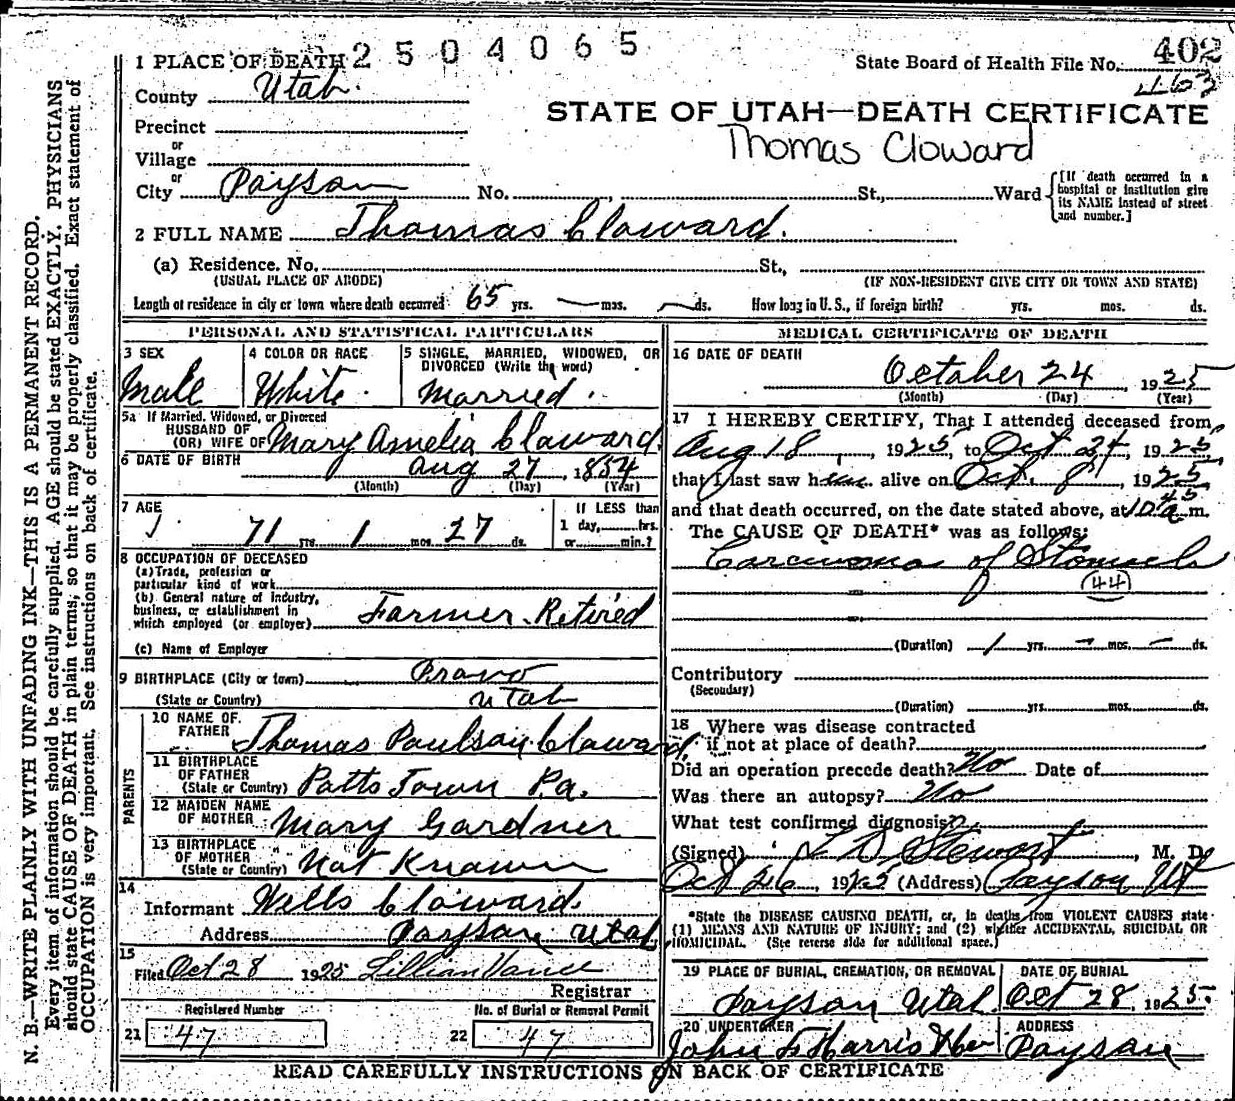 2504065
402
463
1 PLACE OF DEATH
State Board of Health File No.
County Utah.
STATE OF UTAH—DEATH CERTIFICATE
Thomas Cloward
Precinct
or
Village
or
City Payson No. St., Ward
[If death occurred in a
hospital or institution give
its NAME instead of street
and number.]
2 FULL NAME Thomas Cloward.
(a) Residence. No. St.,
(USUAL PLACE OF ABODE) (IF NON-RESIDENT GIVE CITY OR TOWN AND STATE)
Length of residence in city or town where death occurred 65 yrs. — mos. — ds. How long in U.S., if foreign birth? yrs. mos. ds.
PERSONAL AND STATISTICAL PARTICULARS
3 SEX
Male
4 COLOR OR RACE
White.
5 SINGLE, MARRIED, WIDOWED, OR
DIVORCED (Write the word)
Married.
5a If Married, Widowed, or Divorced
HUSBAND OF
(OR) WIFE OF Mary Amelia Cloward.
6 DATE OF BIRTH Aug 27, 1854
(Month) (Day) (Year)
7 AGE
71 yrs. 1 mos. 27 ds.
If LESS than
1 day, hrs.
or min.?
8 OCCUPATION OF DECEASED
(a) Trade, profession or
particular kind of work
(b) General nature of Industry,
business, or establishment in
which employed (or employer) Farmer. Retired
(c) Name of Employer
9 BIRTHPLACE (City or town) Provo
(State or Country) Utah
PARENTS
10 NAME OF
FATHER Thomas Paulson Cloward.
11 BIRTHPLACE
OF FATHER
(State or Country) Potts Town Pa.
12 MAIDEN NAME
OF MOTHER Mary Gardner
13 BIRTHPLACE
OF MOTHER
(State or Country) Not Known
14
Informant Wells Cloward.
Address Payson Utah
15
Filed Oct 28 1925 Lillian Vance
Registrar
Registered Number
21 47
No. of Burial or Removal Permit
22 47
MEDICAL CERTIFICATE OF DEATH
16 DATE OF DEATH
October 24, 1925
(Month) (Day) (Year)
17 I HEREBY CERTIFY, That I attended deceased from
Aug 18, 1925, to Oct 24, 1925
that I last saw him alive on Oct. 8, 1925
and that death occurred, on the date stated above, at 10 45 a m.
The CAUSE OF DEATH* was as follows:
Carcinoma of Stomach
44
(Duration) 1 yrs. – mos. – ds.
Contributory
(Secondary)
(Duration) yrs. mos. ds.
18 Where was disease contracted
if not at place of death?
Did an operation precede death? No Date of
Was there an autopsy? No
What test confirmed diagnosis?
(Signed) L D Stewart, M. D.
Oct 26, 1925 (Address) Payson Ut
*State the DISEASE CAUSING DEATH, or, in deaths from VIOLENT CAUSES state
(1) MEANS AND NATURE OF INJURY; and (2) whether ACCIDENTAL, SUICIDAL OR
HOMICIDAL. (See reverse side for additional space.)
19 PLACE OF BURIAL, CREMATION, OR REMOVAL
Payson Utah.
DATE OF BURIAL
Oct 28, 1925.
20 UNDERTAKER
John F Harris
ADDRESS
Payson
READ CAREFULLY INSTRUCTIONS ON BACK OF CERTIFICATE
N. B.—WRITE PLAINLY WITH UNFADING INK—THIS IS A PERMANENT RECORD.
Every item of information should be carefully supplied. AGE should be stated EXACTLY. PHYSICIANS
should state CAUSE OF DEATH in plain terms, so that it may be properly classified. Exact statement of
OCCUPATION is very important. See instructions on back of certificate.